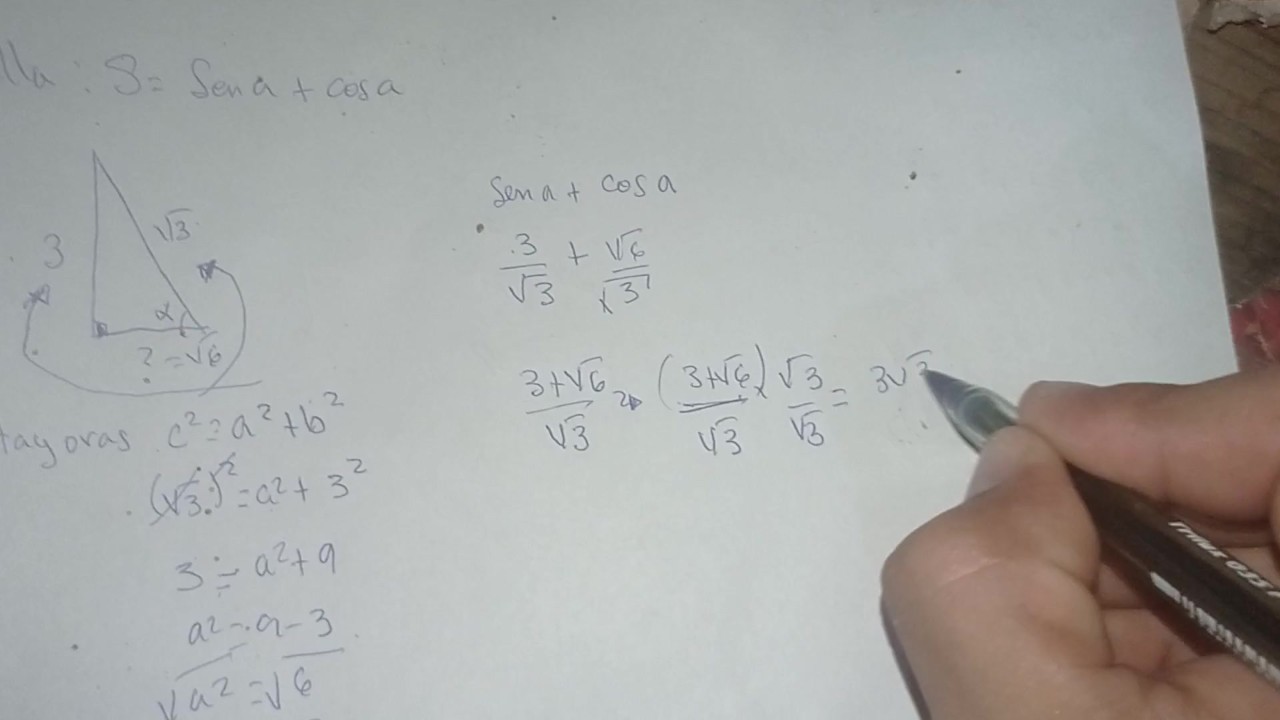 lla : S = Sen a + cos a
3
√3
α
? = √6
tagoras c² = a² + b²
(√3)² = a² + 3²
3 = a² + 9
a² = 9 - 3
√a² = √6
Sen a + cos a
3/√3 + √6/√3
3+√6/√3 = (3+√6/√3) √3/√3 = 3√3